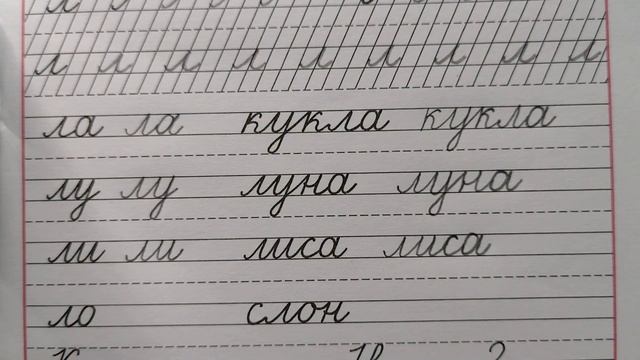 л л л л л л л л л
ла ла кукла кукла
лу лу луна луна
ли ли лиса лиса
ло слон